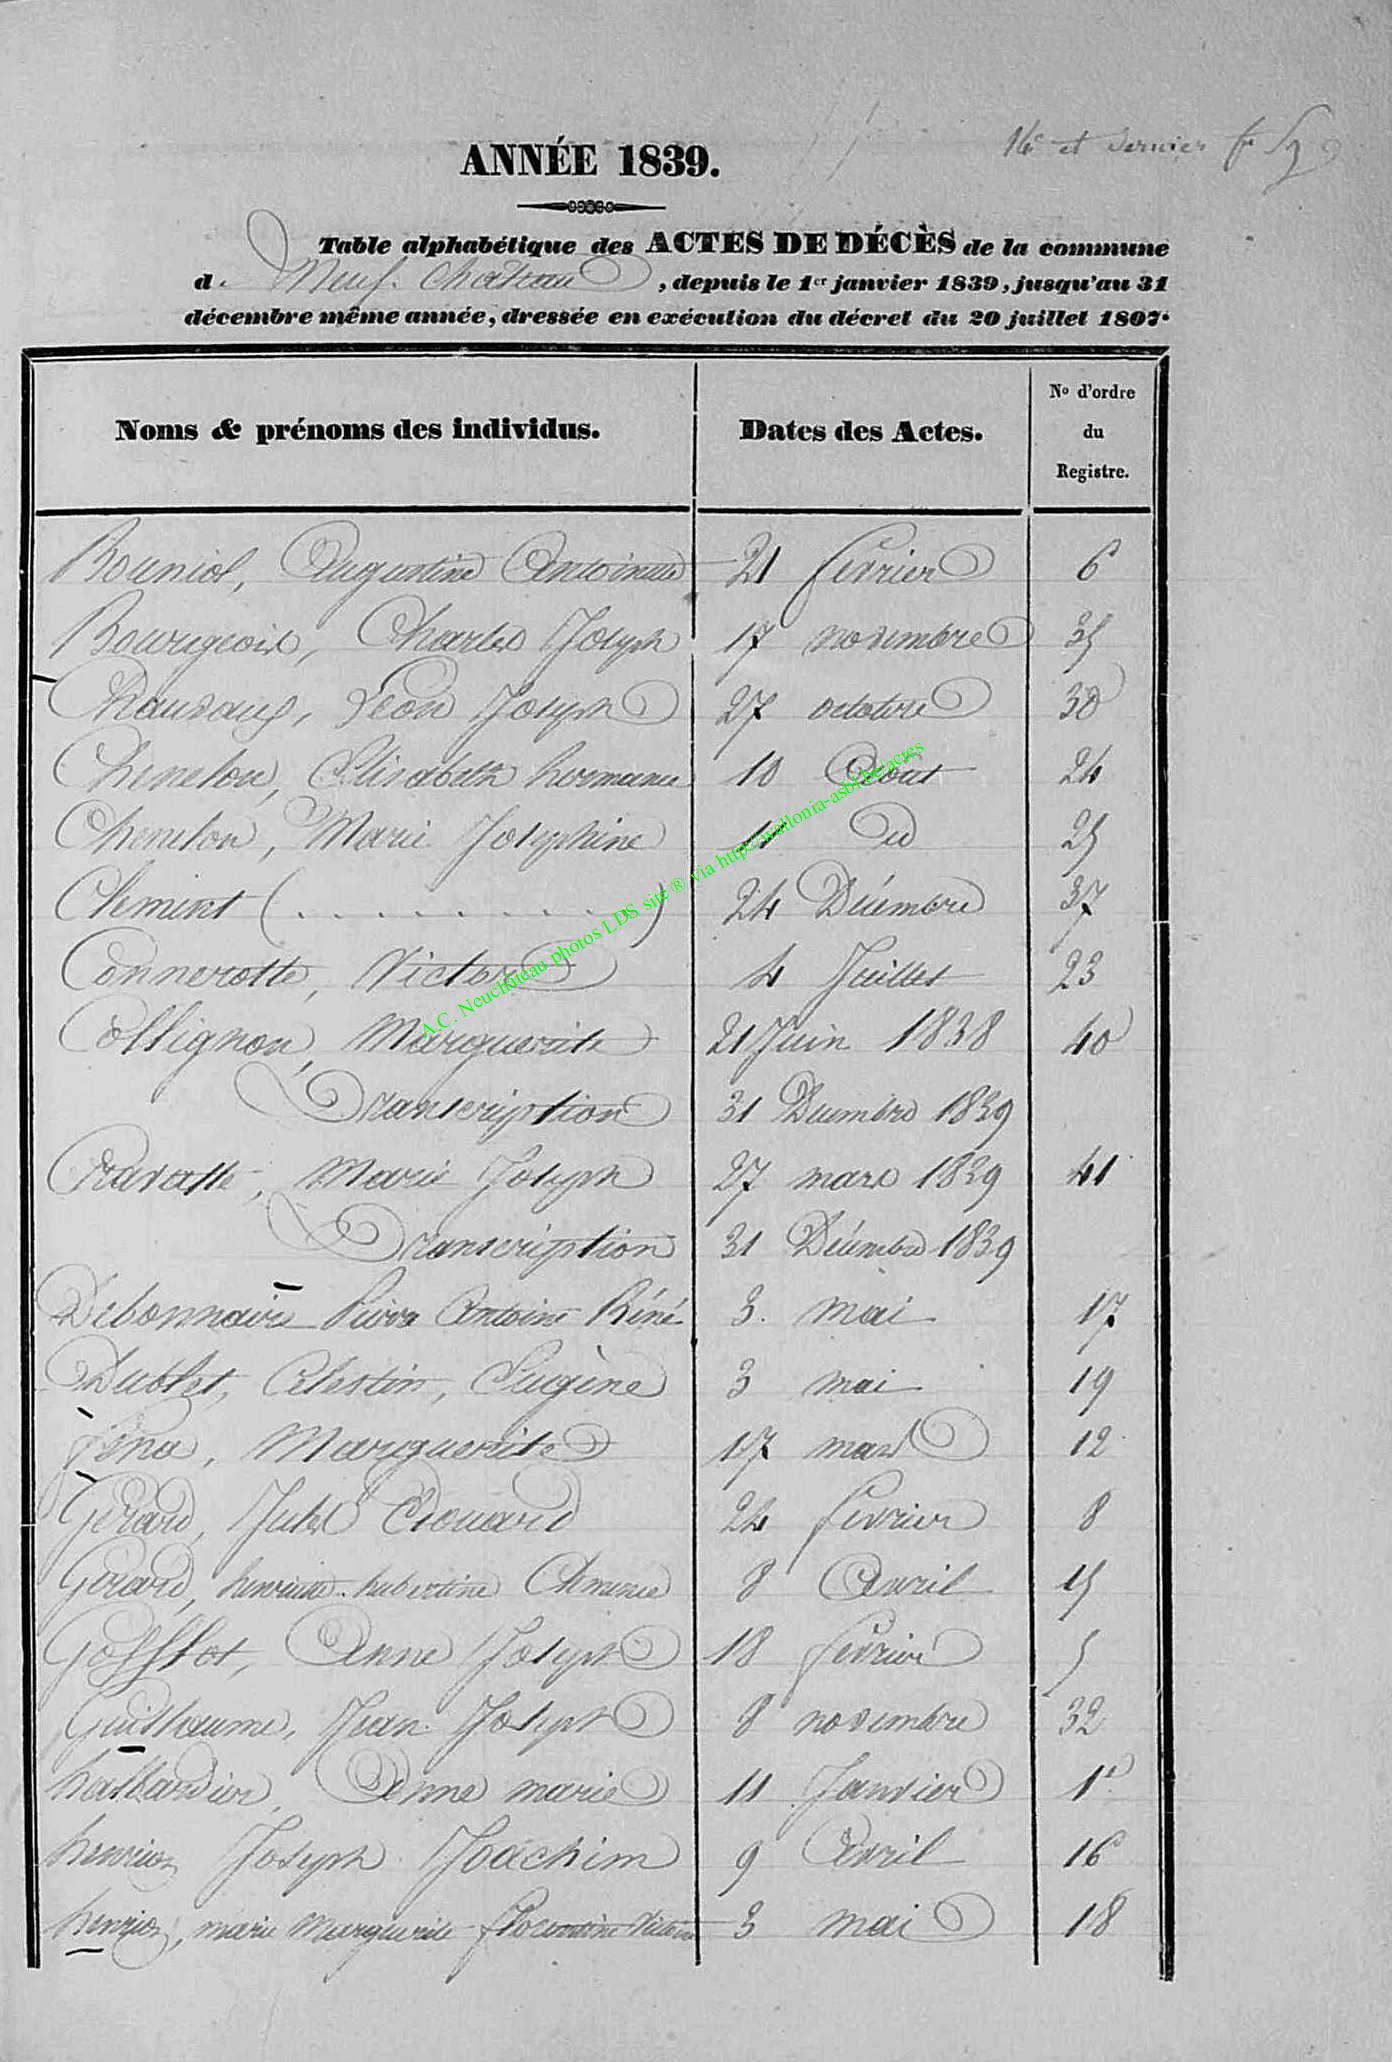 14e et dernier
ANNÉE 1839.
Table alphabétique des ACTES DE DÉCÈS de la commune
d. Neuf-Château, depuis le 1er janvier 1839, jusqu'au 31
décembre même année, dressée en exécution du décret du 20 juillet 1807.
Noms & prénoms des individus. Dates des Actes. No d'ordre du Registre.
Bouniol, Augustine Antoinette 21 février 6
Bourgeois, Charles Joseph 17 novembre 35
Léon Joseph 27 octobre 30
Chenelon, Elisabeth hermance 10 Aout 24
Chenelon, Marie Joséphine 11 do 25
Clement (. . . . . . . . .) 24 Décembre 37
Connerotte, Victor 4 Juillet 23
Collignon, Marguerite 21 Juin 1838 40
Transcription 31 Decembre 1839
Cravatte, Marie Joseph 27 mars 1839 41
Transcription 31 Décembre 1839
Debonnaire Pierre Antoine Réné 3. mai 17
Dublet, Celestin, Eugène 3 mai 19
fona, Marguerite 17 mars 12
Gérard, Jules Edouard 24 février 8
Gerard, henriette hubertine Chimene 8 Avril 15
Gofflot, Anne Joseph 18 février 5
Guillaume, Jean Joseph 8 novembre 32
halbardier, Anne marie 11 Janvier 1e
henrion Joseph Joachim 9 Avril 16
henrion, marie Marguerite florentine 3 mai 18
A.C. Neuchâteau photos LDS site ® via http://wallonia-asbl.be/actes